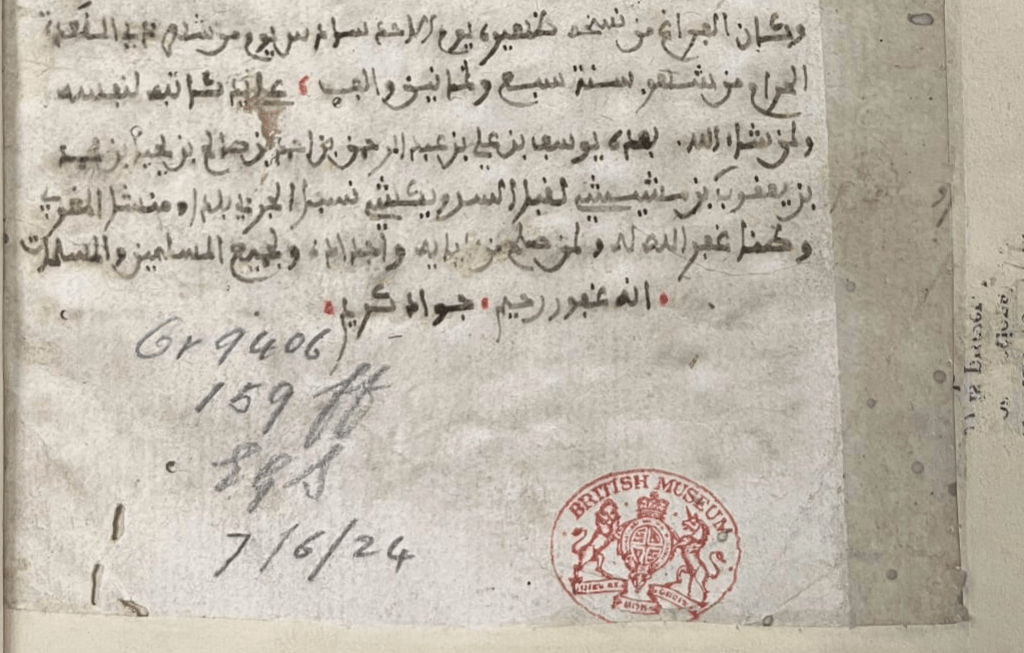 وكان الفراغ من نسخه ظهيرة يوم الاحد سادس يوم من شهر ذي القعدة
الحرام من شهور سنة سبع وثمانين والف على يد كاتبه لنفسه
ولمن شاء الله بعده يوسف بن علي بن عبد الرحمن بن احمد بن صالح بن
بن يعقوب بن لقبا نسبا بلدا ومنشئا المغرب
وطنا غفر الله له ولمن من واجداده ولجميع المسلمين والمسلمات
انه غفور رحيم جواد كريم
Or 9406
159 ff
7/6/24
BRITISH MUSEUM